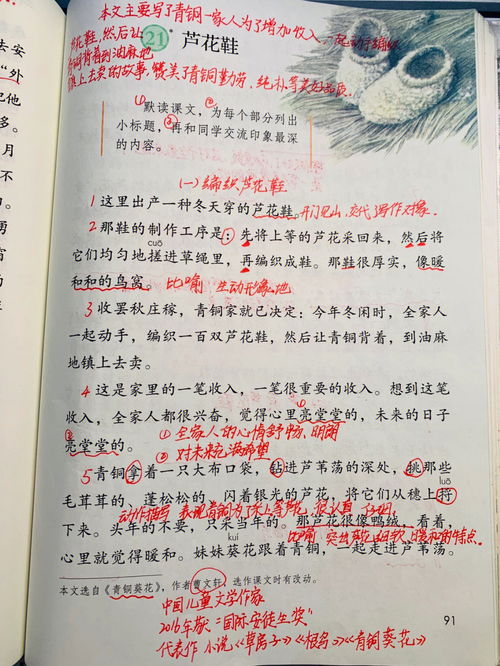 本文主要写了青铜一家人为了增加收入,一起动手编织
芦花鞋,然后让
青铜背着到油麻地
镇上去卖的故事,赞美了青铜勤劳、纯朴等美好品质。
21 芦花鞋
① ②
默读课文,为每个部分列出
小标题,③再和同学交流印象最深
的内容。
(一)编织芦花鞋
1 这里出产一种冬天穿的芦花鞋。开门见山,交代了写作对象。
2 那鞋的制作工序是:先将上等的芦花采回来,然后将
cuō
它们均匀地搓进草绳里,再编织成鞋。那鞋很厚实,像暖
和和的鸟窝。 比喻 生动形象地
3 收罢秋庄稼,青铜家就已决定:今年冬闲时,全家人
一起动手,编织一百双芦花鞋,然后让青铜背着,到油麻
地镇上去卖。
4 这是家里的一笔收入,一笔很重要的收入。想到这笔
①
收入,全家人都很兴奋,觉得心里亮堂堂的,未来的日子
②
亮堂堂的。 ① 全家人的心情舒畅、明朗
② 对未来充满希望
5 青铜拿着一只大布口袋,钻进芦苇荡的深处,挑那些
luō
毛茸茸的、蓬松松的、闪着银光的芦花,将它们从穗上捋
动作描写 表现青铜为了采上等芦花,很认真
下来。头年的不要,只采当年的。那芦花很像鸭绒,看着,
比喻 突出芦花细软、暖和的特点。
kuí
心里就觉得暖和。妹妹葵花跟着青铜,一起走进芦苇荡。
本文选自《青铜葵花》,作者曹文轩,选作课文时有改动。
中国儿童文学作家
2016年获“国际安徒生奖”
代表作 小说《草房子》《根鸟》《青铜葵花》
91
去安
“外
把他
多。
月
不